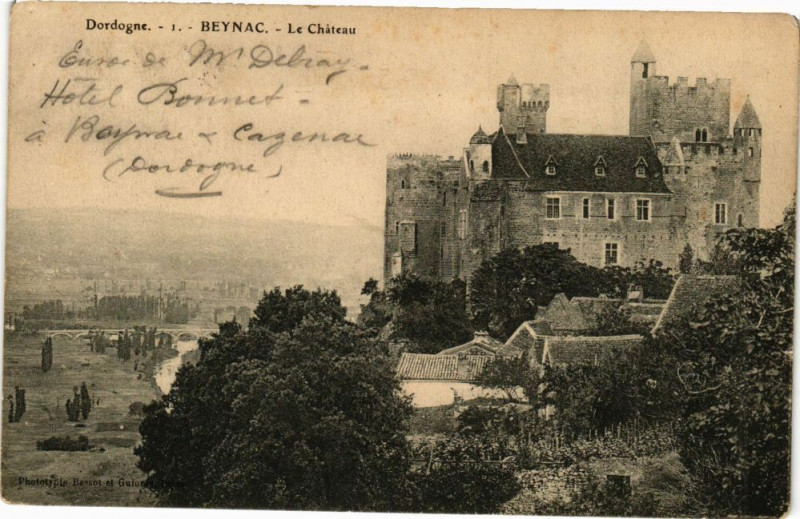 Dordogne. - 1. - BEYNAC. - Le Château
Envoi de Mr Debray -
Hôtel Bonnet -
à Beynac & Cazenac
(Dordogne)
Phototypie Bessot et Guionie,